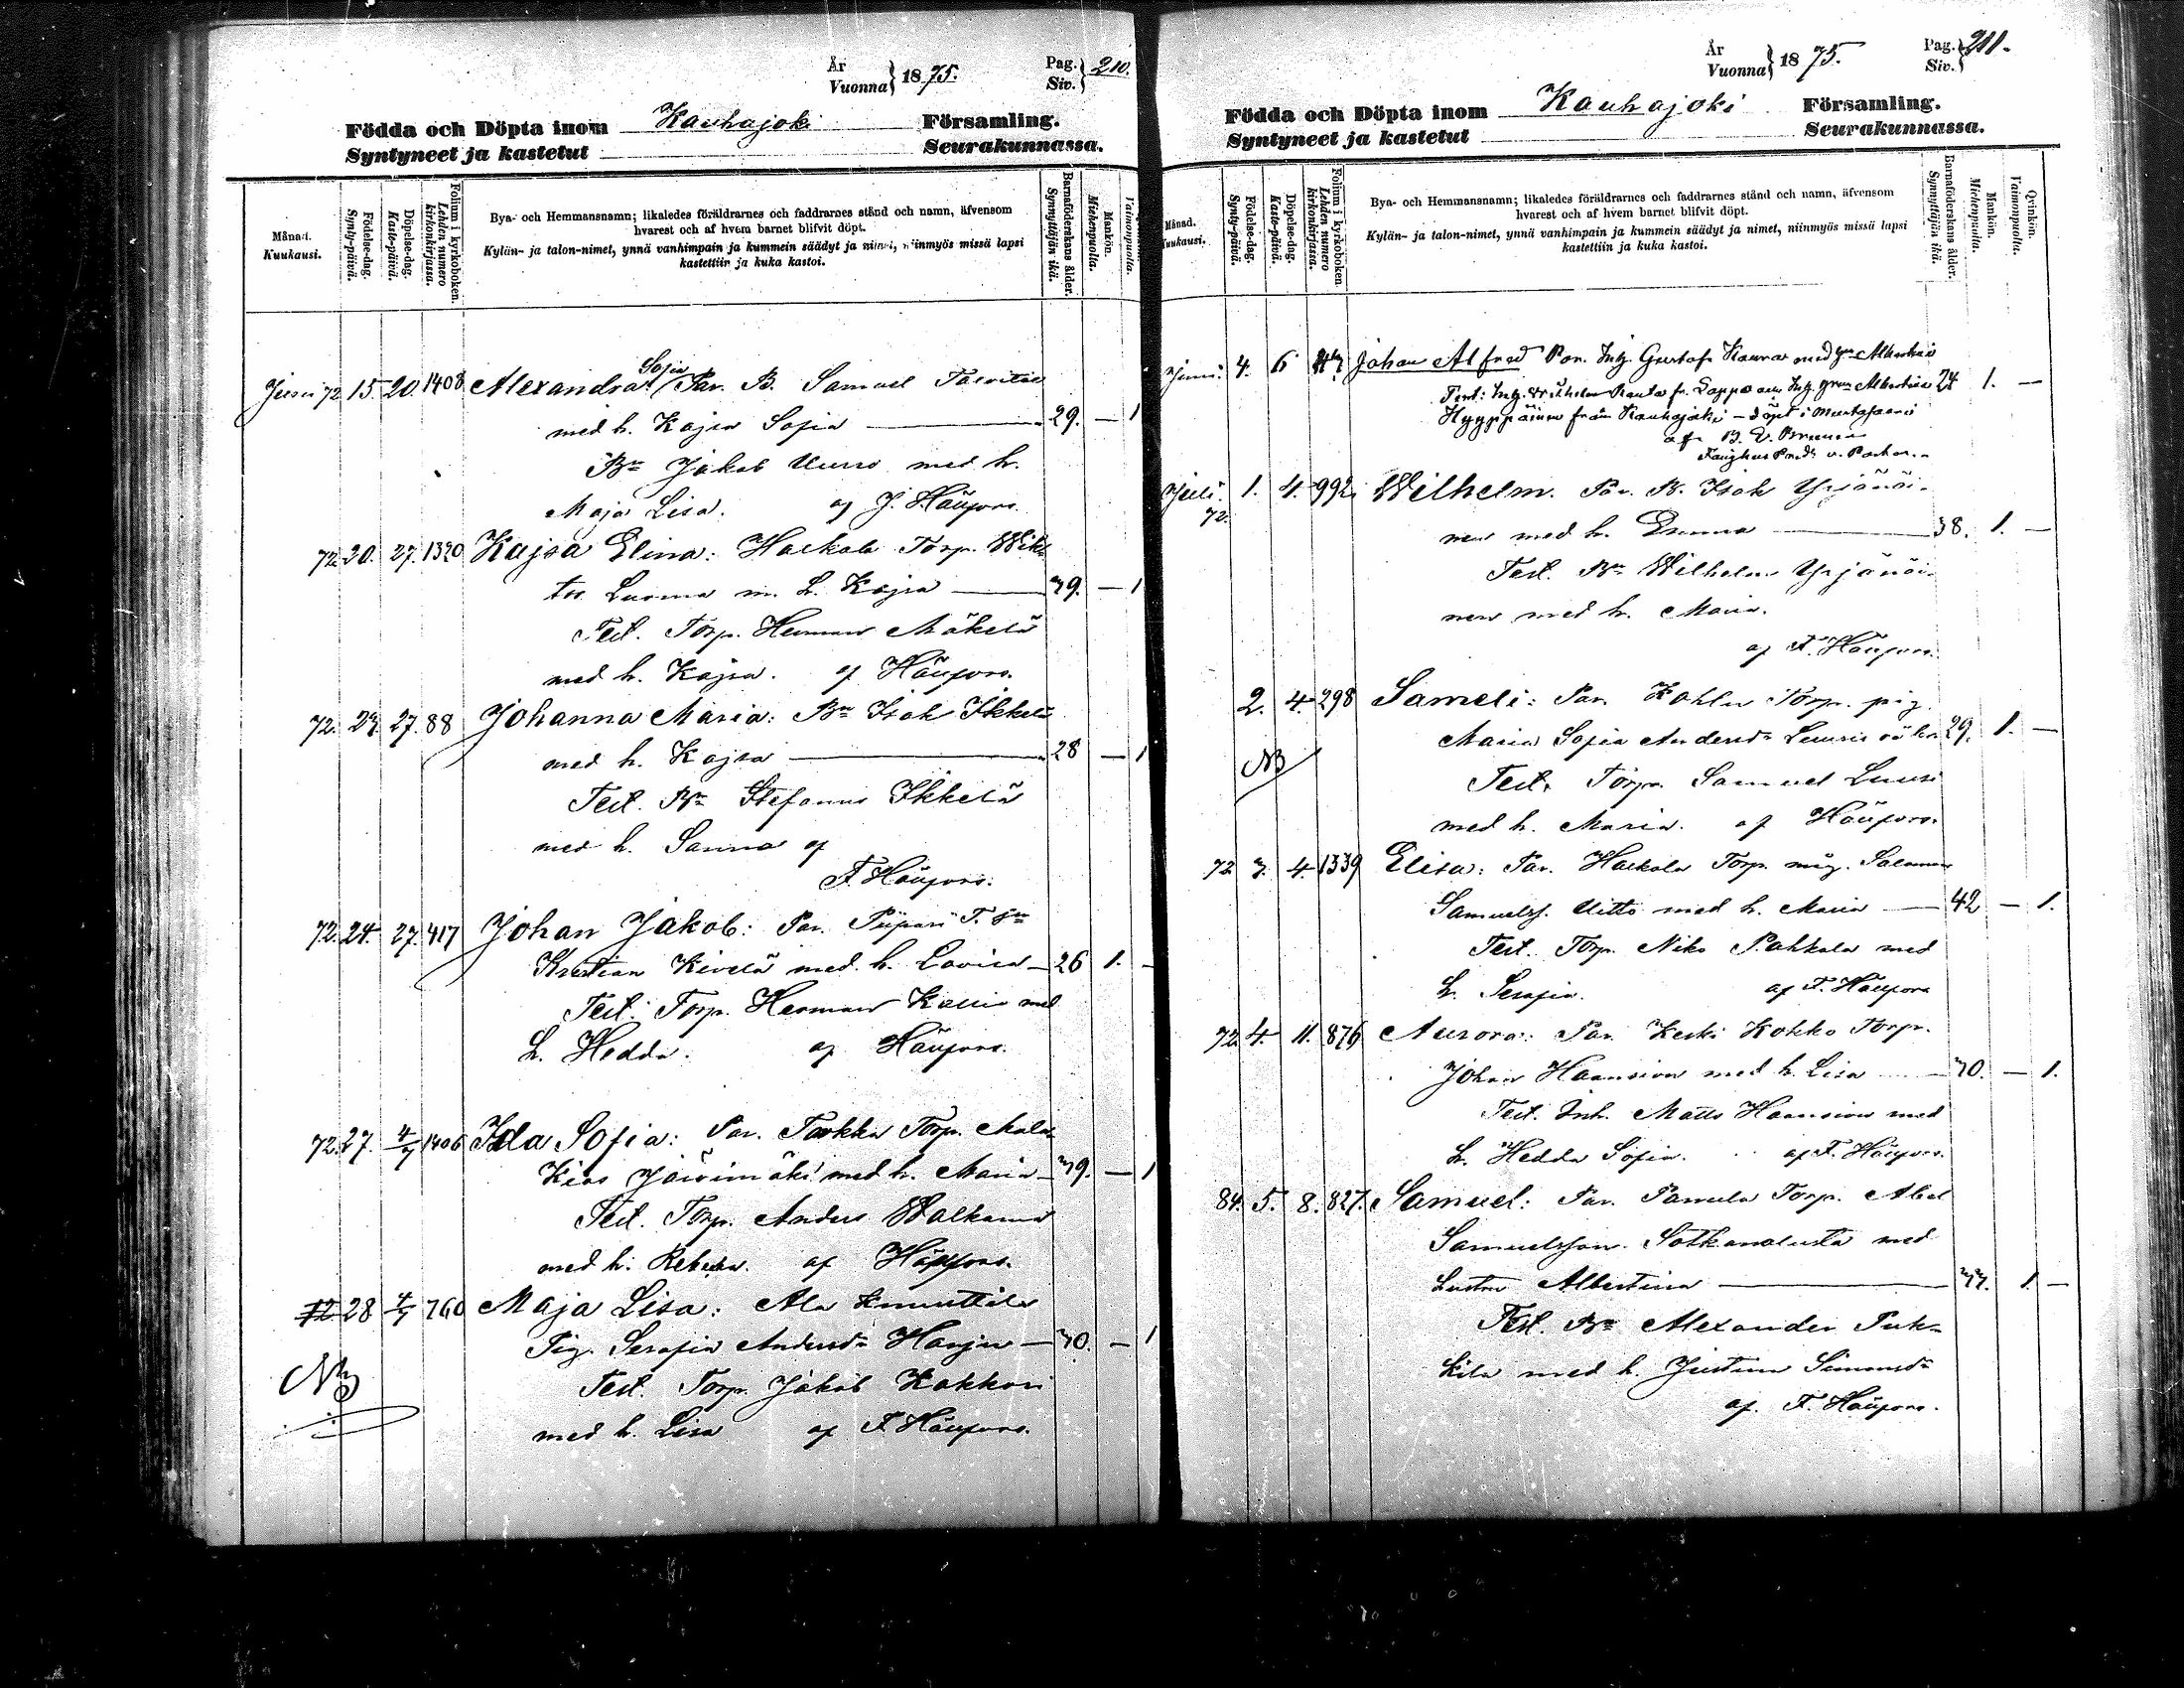 År
Vuonna } 1875.
Pag.
Siv. } 210.
Födda och Döpta inom Kauhajoki Församling.
Syntyneet ja kastetut Seurakunnassa.
Månad.
Kuukausi.
Födelse-dag.
Synty-päivä.
Döpelse-dag.
Kaste-päivä.
Folium i kyrkoboken.
Lehden numero kirkonkirjassa.
Bya- och Hemmansnamn; likaledes föräldrarnes och faddrarnes stånd och namn, äfvensom
hvarest och af hvem barnet blifvit döpt.
Kylän- ja talon-nimet, ynnä vanhimpain ja kummein säädyt ja nimet, niinmyös missä lapsi
kastettiin ja kuka kastoi.
Barnaföderskans ålder.
Synnyttäjän ikä.
Mankön.
Miehenpuolta.
Vaimonpuolta.
Juni 72 15. 20. 1408 Alexandra Sofia Par. B. Samuel
med h. Kajsa Sofia — 29. — 1
Bn Jakob med h.
Maja Lisa. af J. Häufors.
72 20. 27. 1320 Kajsa Elina: Harkola Torp. Wik-
tor Luoma m. h. Kajsa — 39. — 1
Test. Torp. Herman Mäkelä
med h. Kajsa. af Häufors.
72. 23. 27. 88 Johanna Maria: Bn Isak Ikkelä
med h. Kajsa — 28 — 1
Test. Bn Stefanus Ikkelä
med h. Sanna af
F. Häufors.
72. 24. 27. 417 Johan Jakob: Par. Piipari T. sn
Kristian Kivelä med h. Lovisa — 26 1. -
Test: Torp. Herman med
h. Hedda. af Häufors.
72. 27. 4/7 1406 Ida Sofia: Par. Torp. Mala-
Kias Järvimäki med h. Maria — 39. — 1
Test. Torp. Anders Walkama
med h. Rebecka. af Häufors.
72 28 4/7 760 Maja Lisa: Ala Knuuttila
Pig. Serafia Andersdr Harju — 30. — 1
NB
Test. Torp. Jakob Kokkoni
med h. Lisa af F. Häufors.
År
Vuonna } 1875.
Pag.
Siv. } 211.
Födda och Döpta inom Kauhajoki Församling.
Syntyneet ja kastetut Seurakunnassa.
Månad.
Kuukausi.
Födelse-dag.
Synty-päivä.
Döpelse-dag.
Kaste-päivä.
Folium i kyrkoboken.
Lehden numero kirkonkirjassa.
Bya- och Hemmansnamn; likaledes föräldrarnes och faddrarnes stånd och namn, äfvensom
hvarest och af hvem barnet blifvit döpt.
Kylän- ja talon-nimet, ynnä vanhimpain ja kummein säädyt ja nimet, niinmyös missä lapsi
kastettiin ja kuka kastoi.
Barnaföderskans ålder.
Synnyttäjän ikä.
Mankön.
Miehenpuolta.
Qvinkön.
Vaimonpuolta.
Juni. 4. 6 Johan Alfred Par. Gustaf med Albertina
Test: Wilhelm Rauta fr. Lappo Albertina 24 1. —
Hyyppäinen från Kauhajoki — döpt i Mustasaari
af
Juli. 72. 1. 4. 992 Wilhelm. Par. B. Isak Yrjänäi-
nen med h. Emma — 38. 1. —
Test. Bn Wilhelm Yrjänäi-
nen med h. Maria.
af F. Häufors.
2. 4. 298 Sameli: Par. Torp. pig.
Maria Sofia Andersdr 29. 1. —
NB
Test. Torp. Samuel
med h. Maria. af Häufors.
72 3. 4. 1339 Elisa: Par. Harkola Torp. måg. Salomon
Samuelss. Uitto med h. Maria — 42 — 1.
Test. Torp. Niko Pahkala med
h. Serafia. af F. Häufors
72. 4. 11. 876 Aurora: Par. Keski Kokko Torp.
Johan med h. Lisa — 30. — 1.
Test. Inh. Matts med
h. Hedda Sofia. af F. Häufors.
84. 5. 8. 827. Samuel: Par. Panula Torp. Abel
Samuelsson. med
hustru Albertina — 33. 1. —
Test. Bn Alexander Puk-
kila med h. Justina Simonsdr
af. F. Häufors.